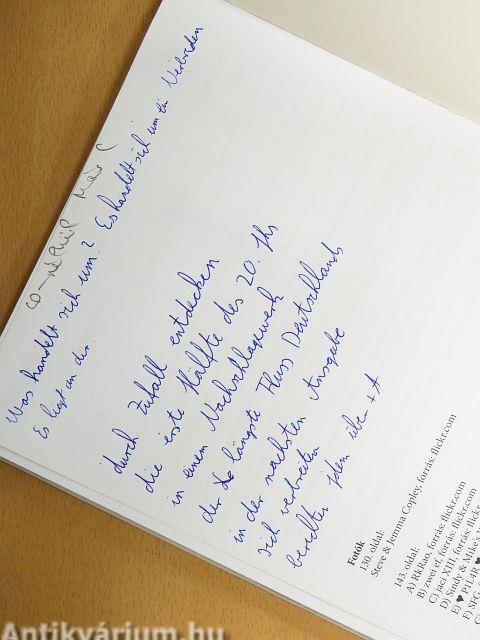 Was handelt sich um? Es handelt sich um ein Verbreden
Es liegt an dir.
durch Zufall entdecken
die erste Hälfte des 20. Jhs
in einem Nachschlagewerk
der längste Fluss Deutschlands
in der nächsten Ausgabe
sich verbreiten
berichten jdm über + A
Fotók
130. oldal:
Steve & Jemma Copley; forrás: flickr.com
143. oldal:
A) RkRao, forrás: flickr.com
B) zwei ef, forrás: flickr.com
C) jaci XIII, forrás: flickr.com
D) Sindy & Mike's
E) ♥ P1L4R ♥
F) SFG
Antikvárium.hu